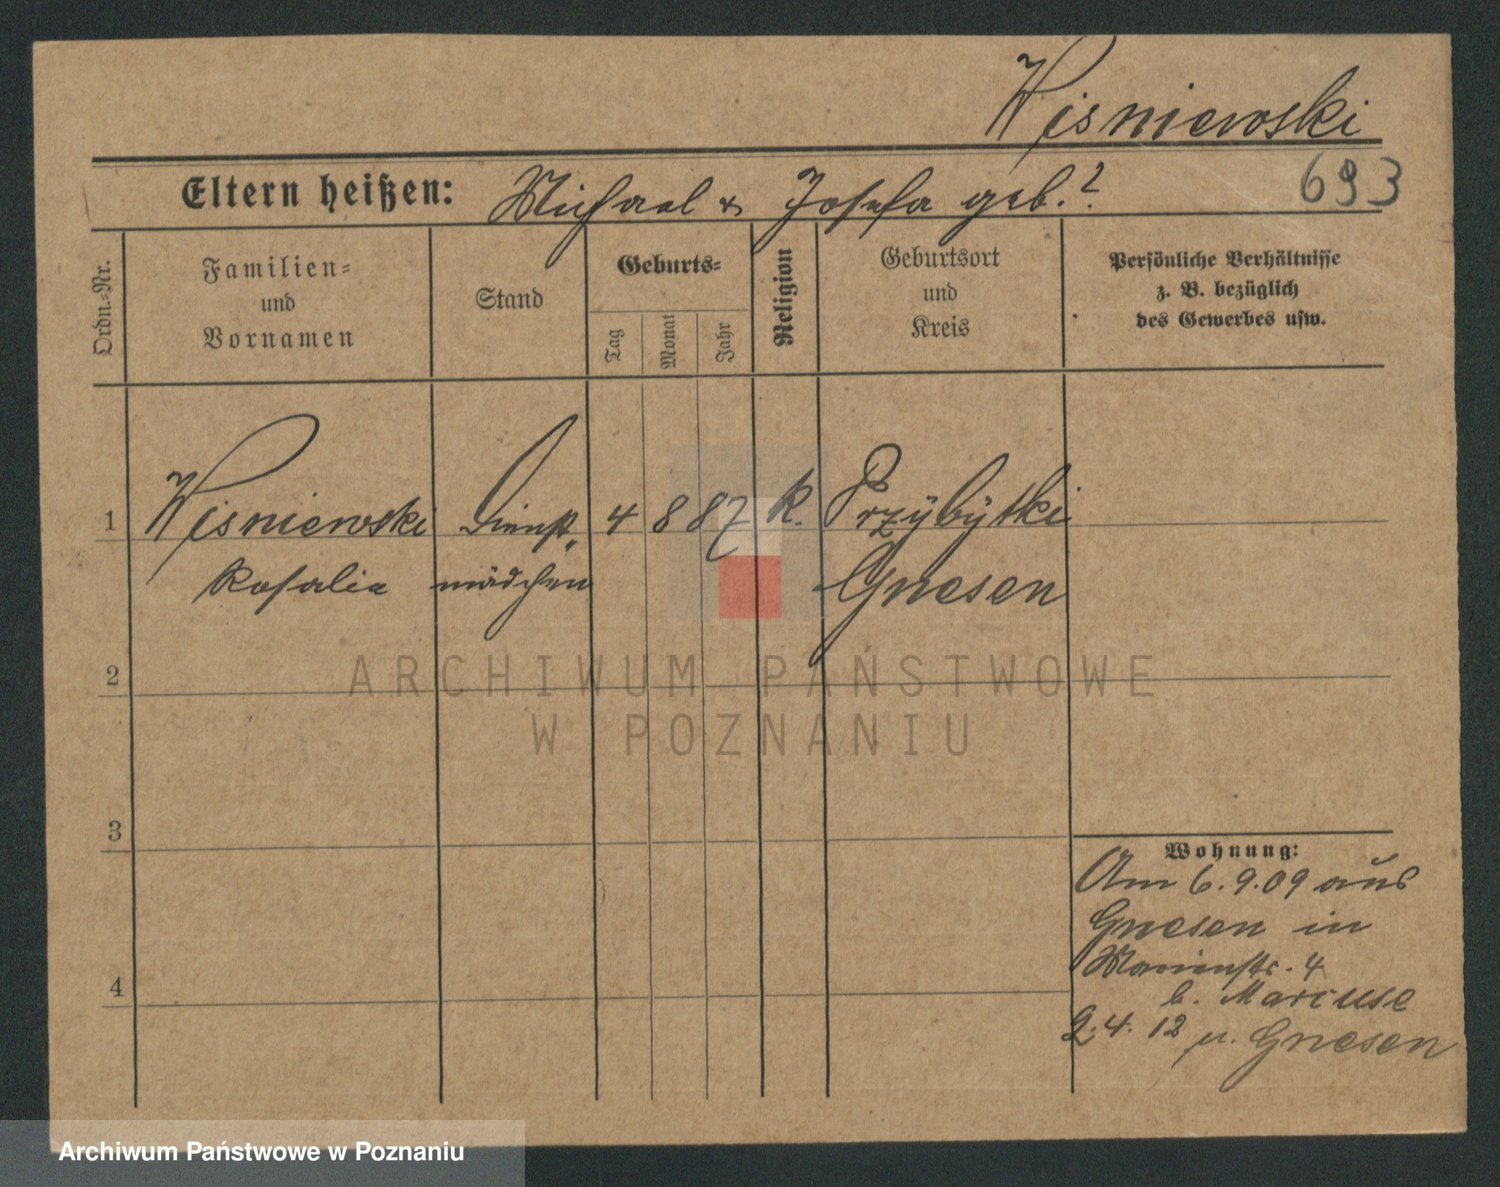 Wisniewski
693
Eltern heißen: Michael & Josefa geb. ?
Ordn.-Nr.
Familien-
und
Vornamen
Stand
Geburts-
Tag
Monat
Jahr
Religion
Geburtsort
und
Kreis
Persönliche Verhältnisse
z. B. bezüglich
des Gewerbes usw.
1 Wisniewski Dienst„ 4 8 87 k. Przybytki
Rosalie mädchen Gnesen
2
3
4
Wohnung:
Am 6.9.09 aus
Gnesen in
Marienstr. 4
b. Marcuse
2.4.12 n. Gnesen
ARCHIWUM PAŃSTWOWE
W POZNANIU
Archiwum Państwowe w Poznaniu